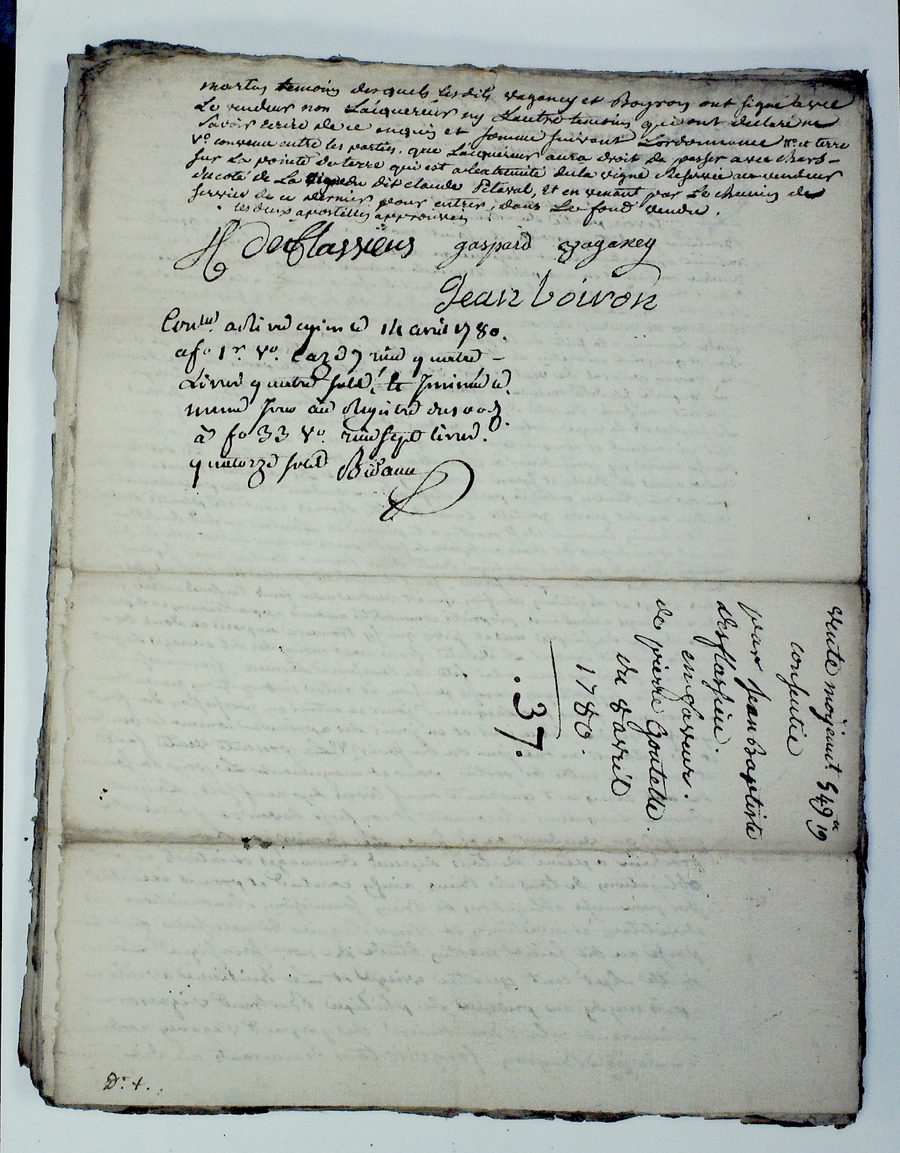 temoins desquels lesdits vaganey et Boyron ont signé avec
Le vendeur non Laicquereur ny Lautre temoins qui ont declaré ne
savoir ecrire de ce enquis et somme suivant Lordonnance et terre
vo. convenu entre les parties, que Laicquereur aura droit de passer avec chars
sur La pointe de terre qui est a lextremité de la vigne reservée au vendeur
du coté de La vigne du dit claude peleval, et en venant par Le chemin de
service de ce dernier pour entrer dans Le fond vendu.
les deux apostilles approuvées
gaspard vaganey
Jean boiron
14 avril 1780.
a fo. 1r. vo. caze 7 reçu quatre
Livres quatre sols
meme jour au Registre
a fo 33 vo. reçu sept livres
quatorze sols
vente moyenant 549 19
consentie
par jean Baptiste
desflassieu
en faveur
de pierre Boutelle.
du 8 avril
1780.
.37.
Dr. +.